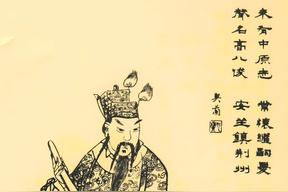 未有中原志　常懷繼嗣憂
聲名高八俊　安坐鎮荊州